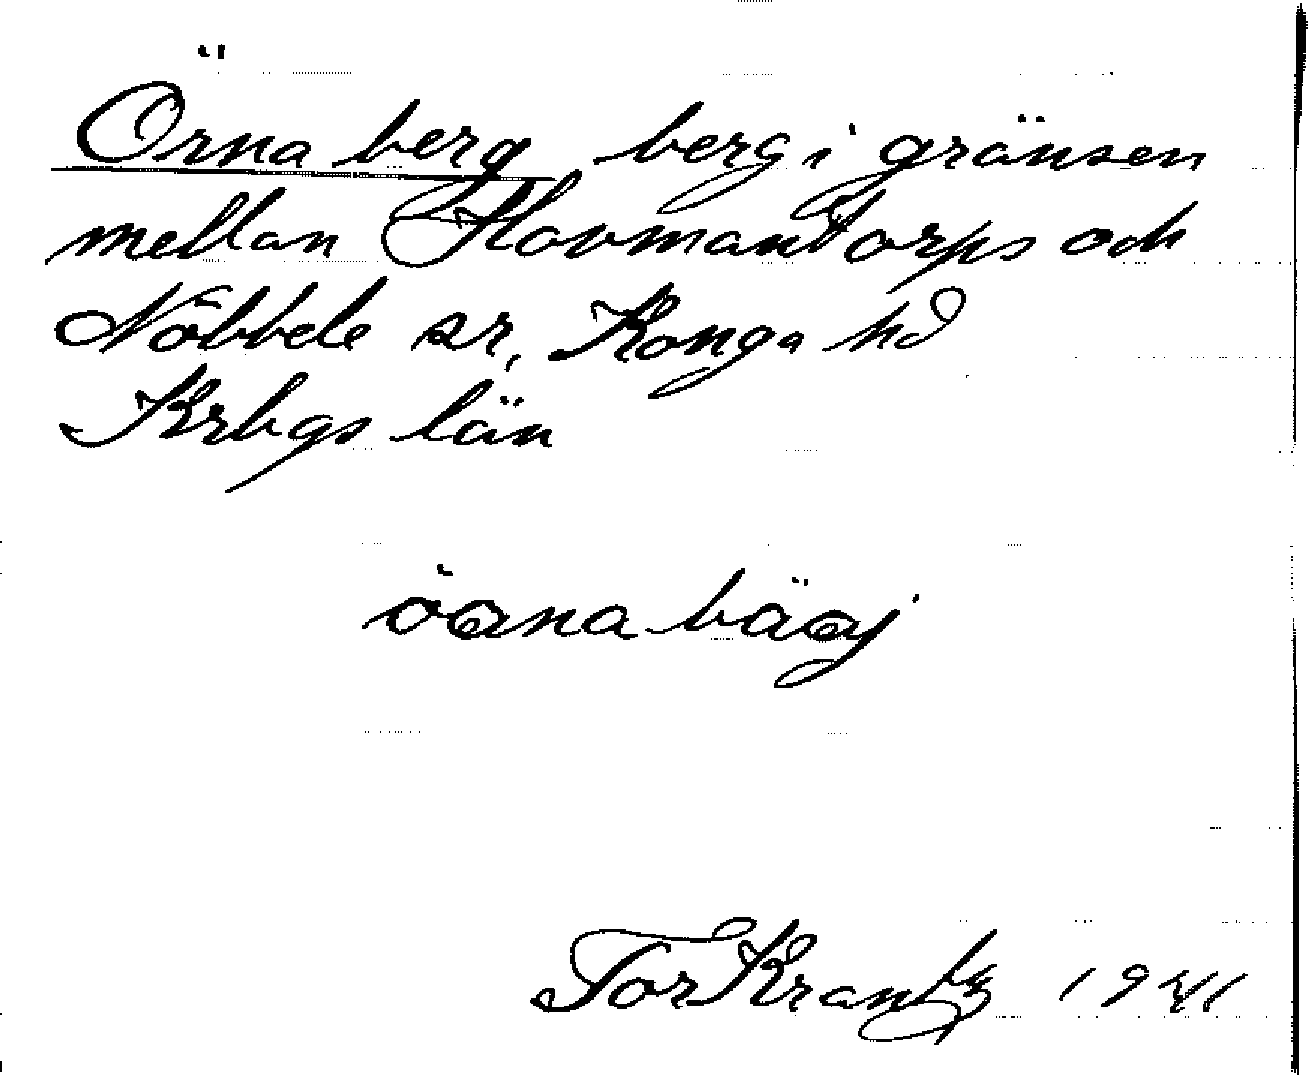 Örnaberg berg i gränsen
mellan Hovmantorps och
Nöbbele sr, Konga hd
Krbgs län
öana bäaj
Tor Krantz 1941